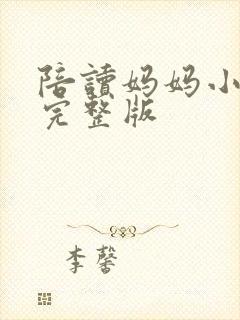 陪讀妈妈小
完整版
李馨